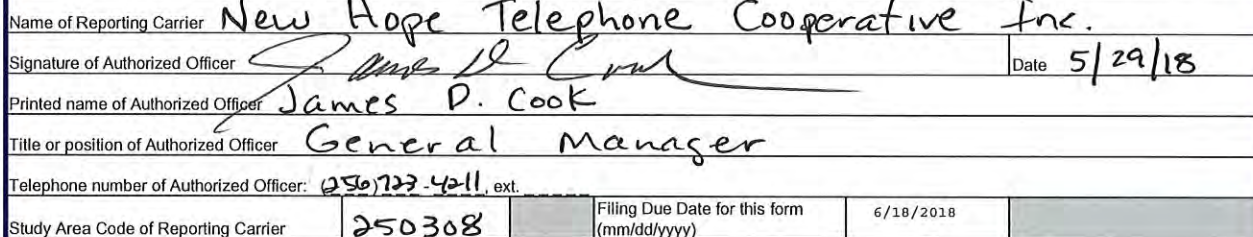 Name of Reporting Carrier New Hope Telephone Cooperative Inc.
Signature of Authorized Officer James D Cook Date 5/29/18
Printed name of Authorized Officer James D. Cook
Title or position of Authorized Officer General Manager
Telephone number of Authorized Officer: (256)723-4211, ext.
Study Area Code of Reporting Carrier 250308 Filing Due Date for this form (mm/dd/yyyy) 6/18/2018